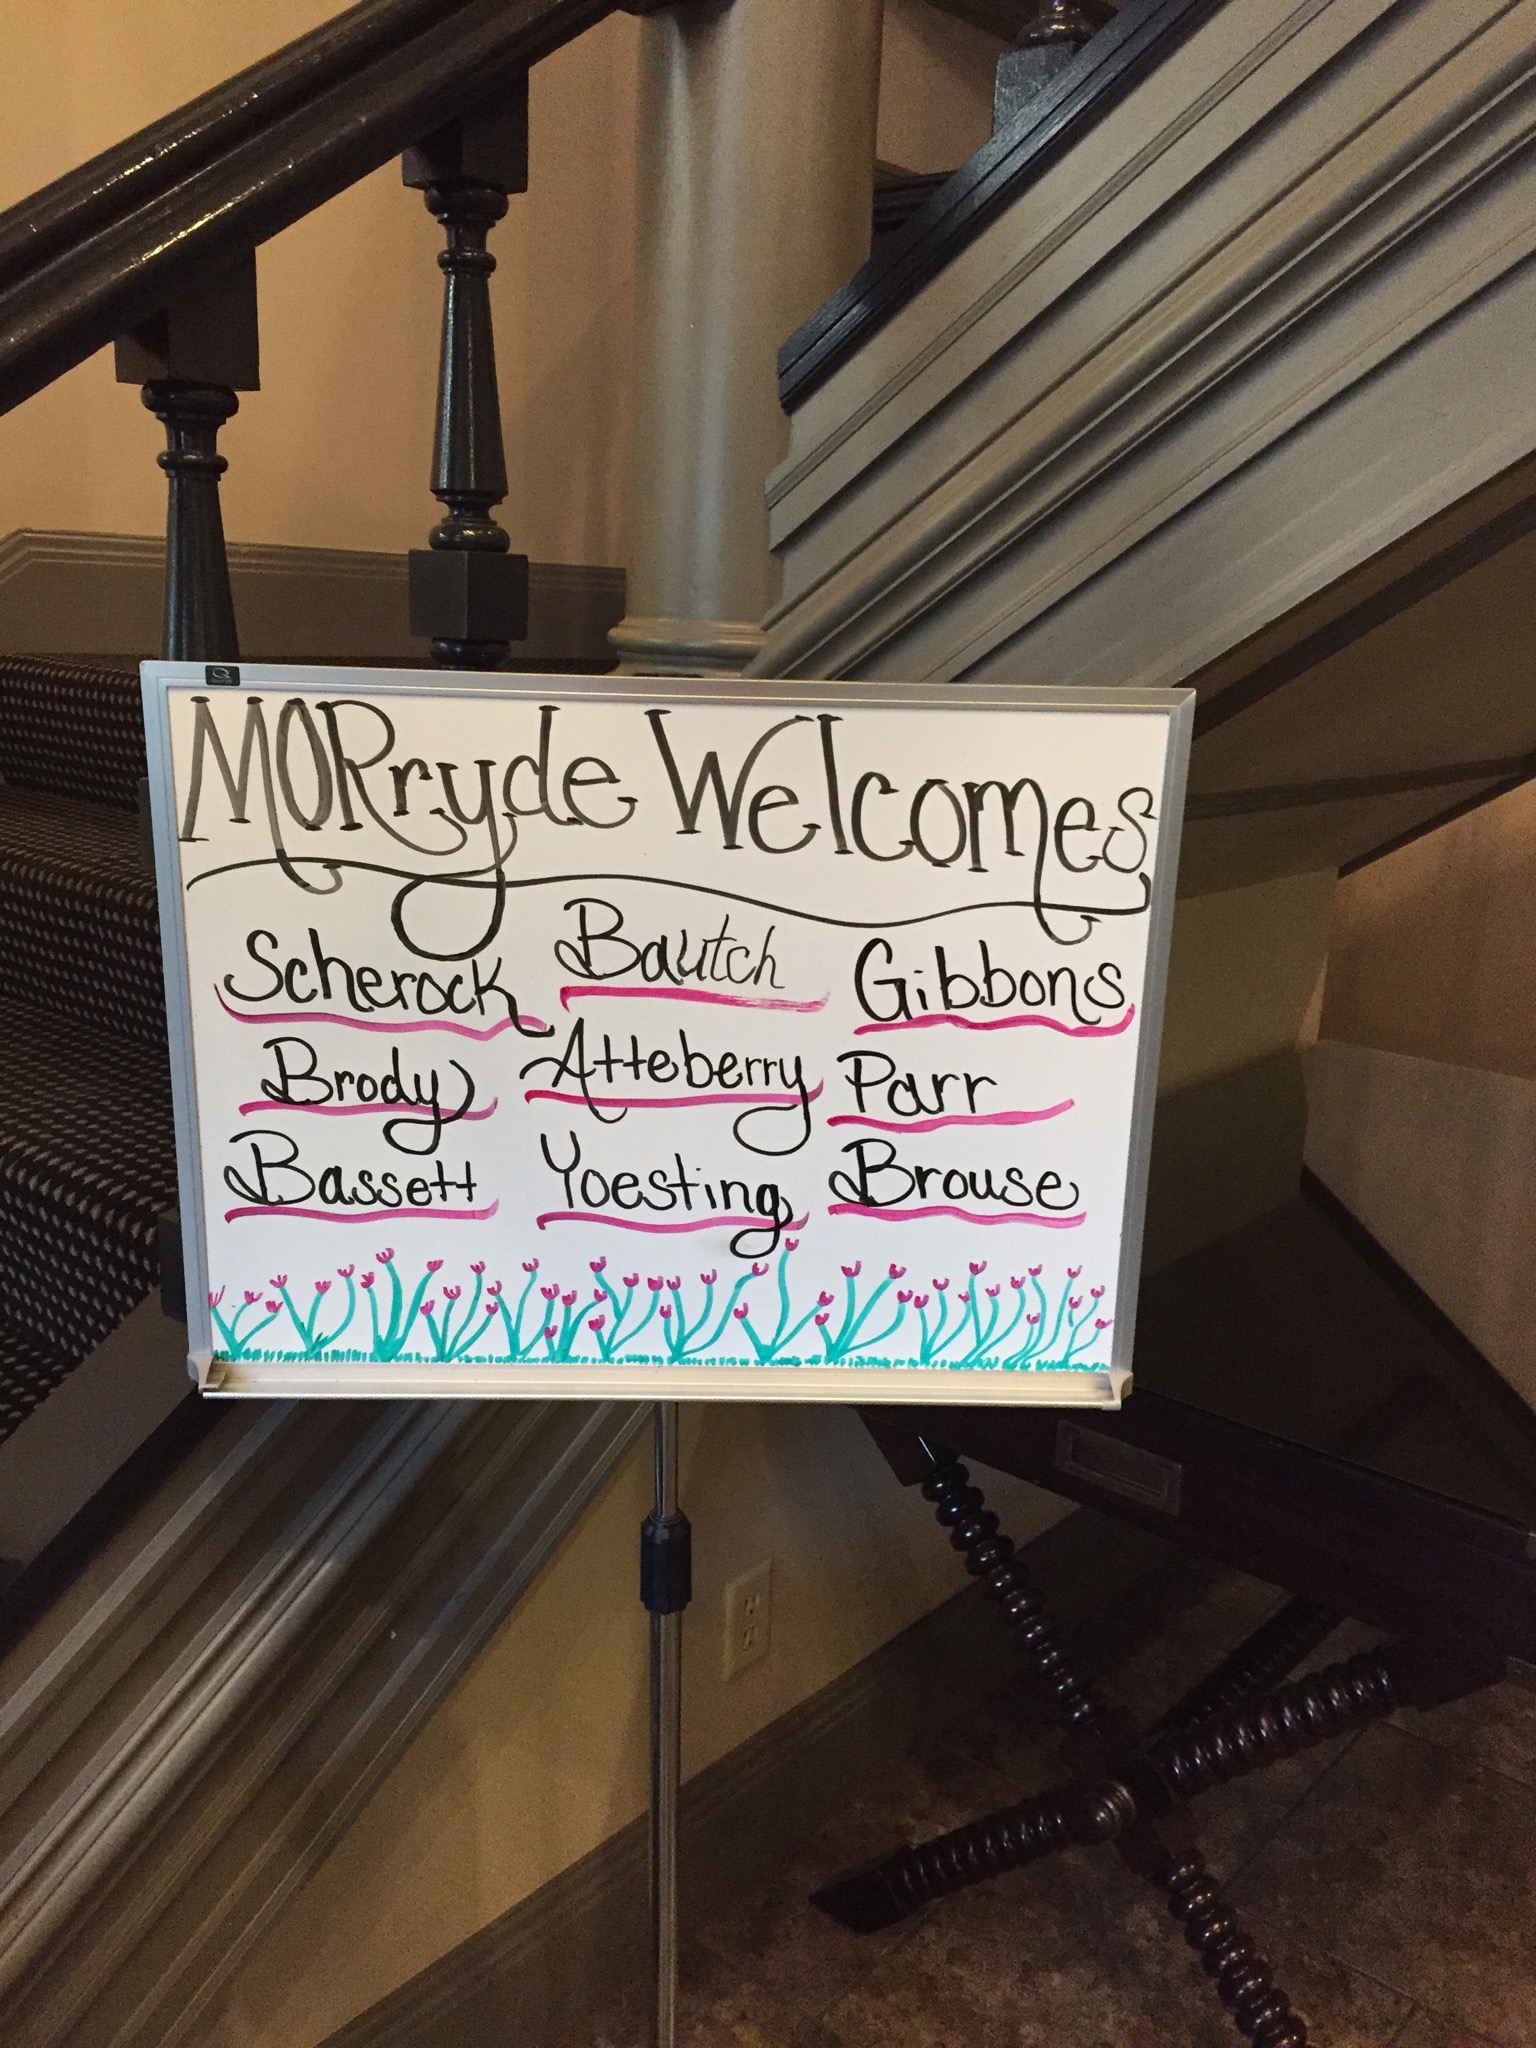 MORryde Welcomes
Scherock Bautch Gibbons
Brody Atteberry Parr
Bassett Yoesting Brouse